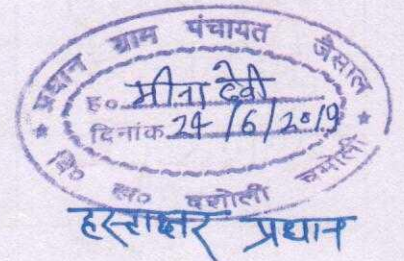 प्रधान ग्राम पंचायत जैसाल
ह० मीना देवी
दिनांक 24/6/2019
वि० ख० दशोली चमोली
हस्ताक्षर प्रधान